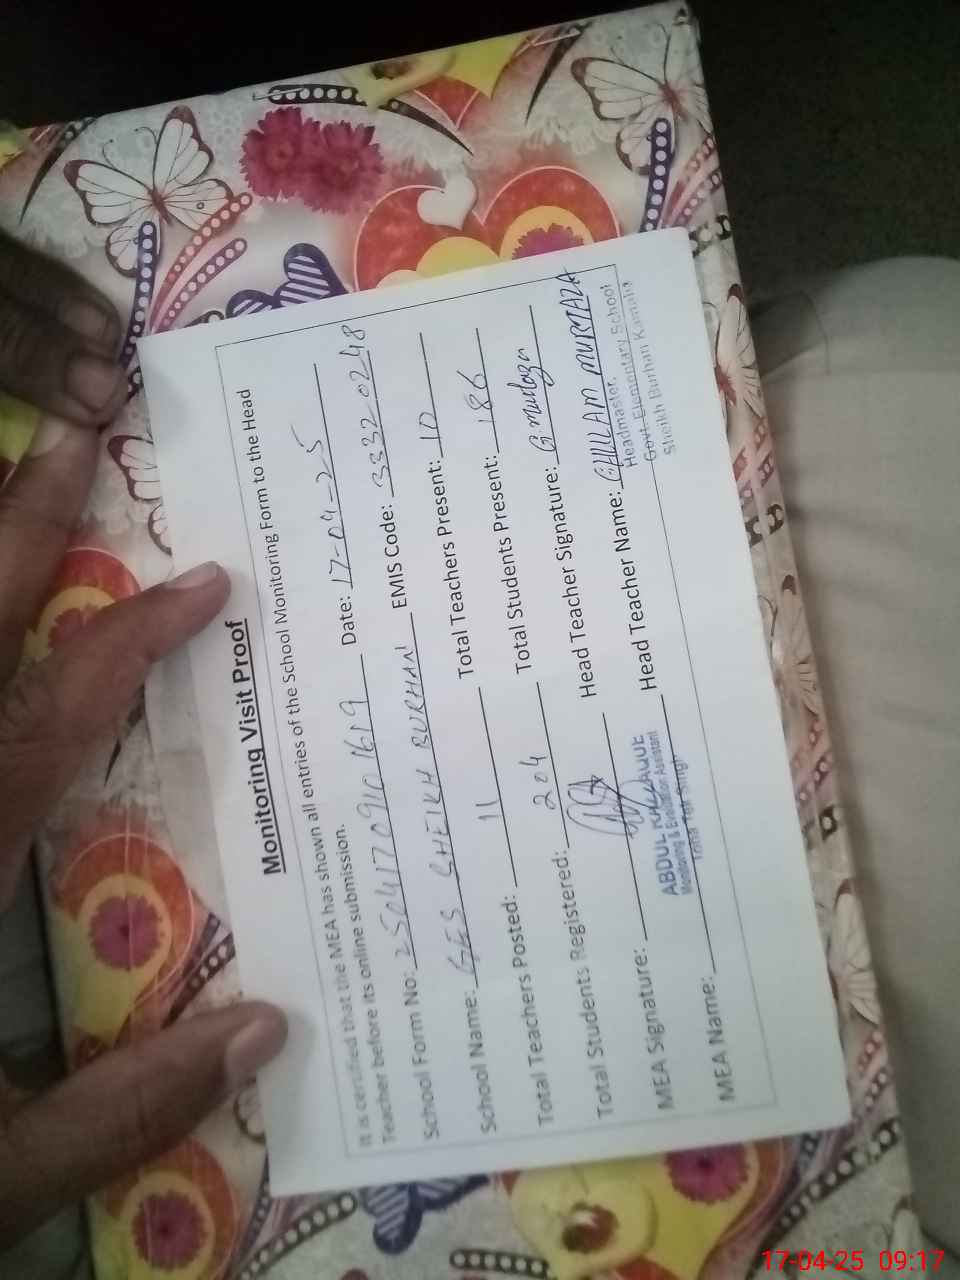 Monitoring Visit Proof
It is certified that the MEA has shown all entries of the School Monitoring Form to the Head
Teacher before its online submission.
School Form No: 25041709101619 Date: 17-04-25
School Name: GES SHEIKH BURHAN EMIS Code: 33320248
Total Teachers Posted: 11 Total Teachers Present: 10
Total Students Registered: 204 Total Students Present: 186
MEA Signature: Head Teacher Signature: G Murtaza
MEA Name: ABDUL KHALLAQUE Head Teacher Name: GHULAM MURTAZA
Monitoring & Evaluation Assistant
Toba Tek Singh
Headmaster,
Govt. Elementary School
Sheikh Burhan Kamalia
17-04-25 09:17